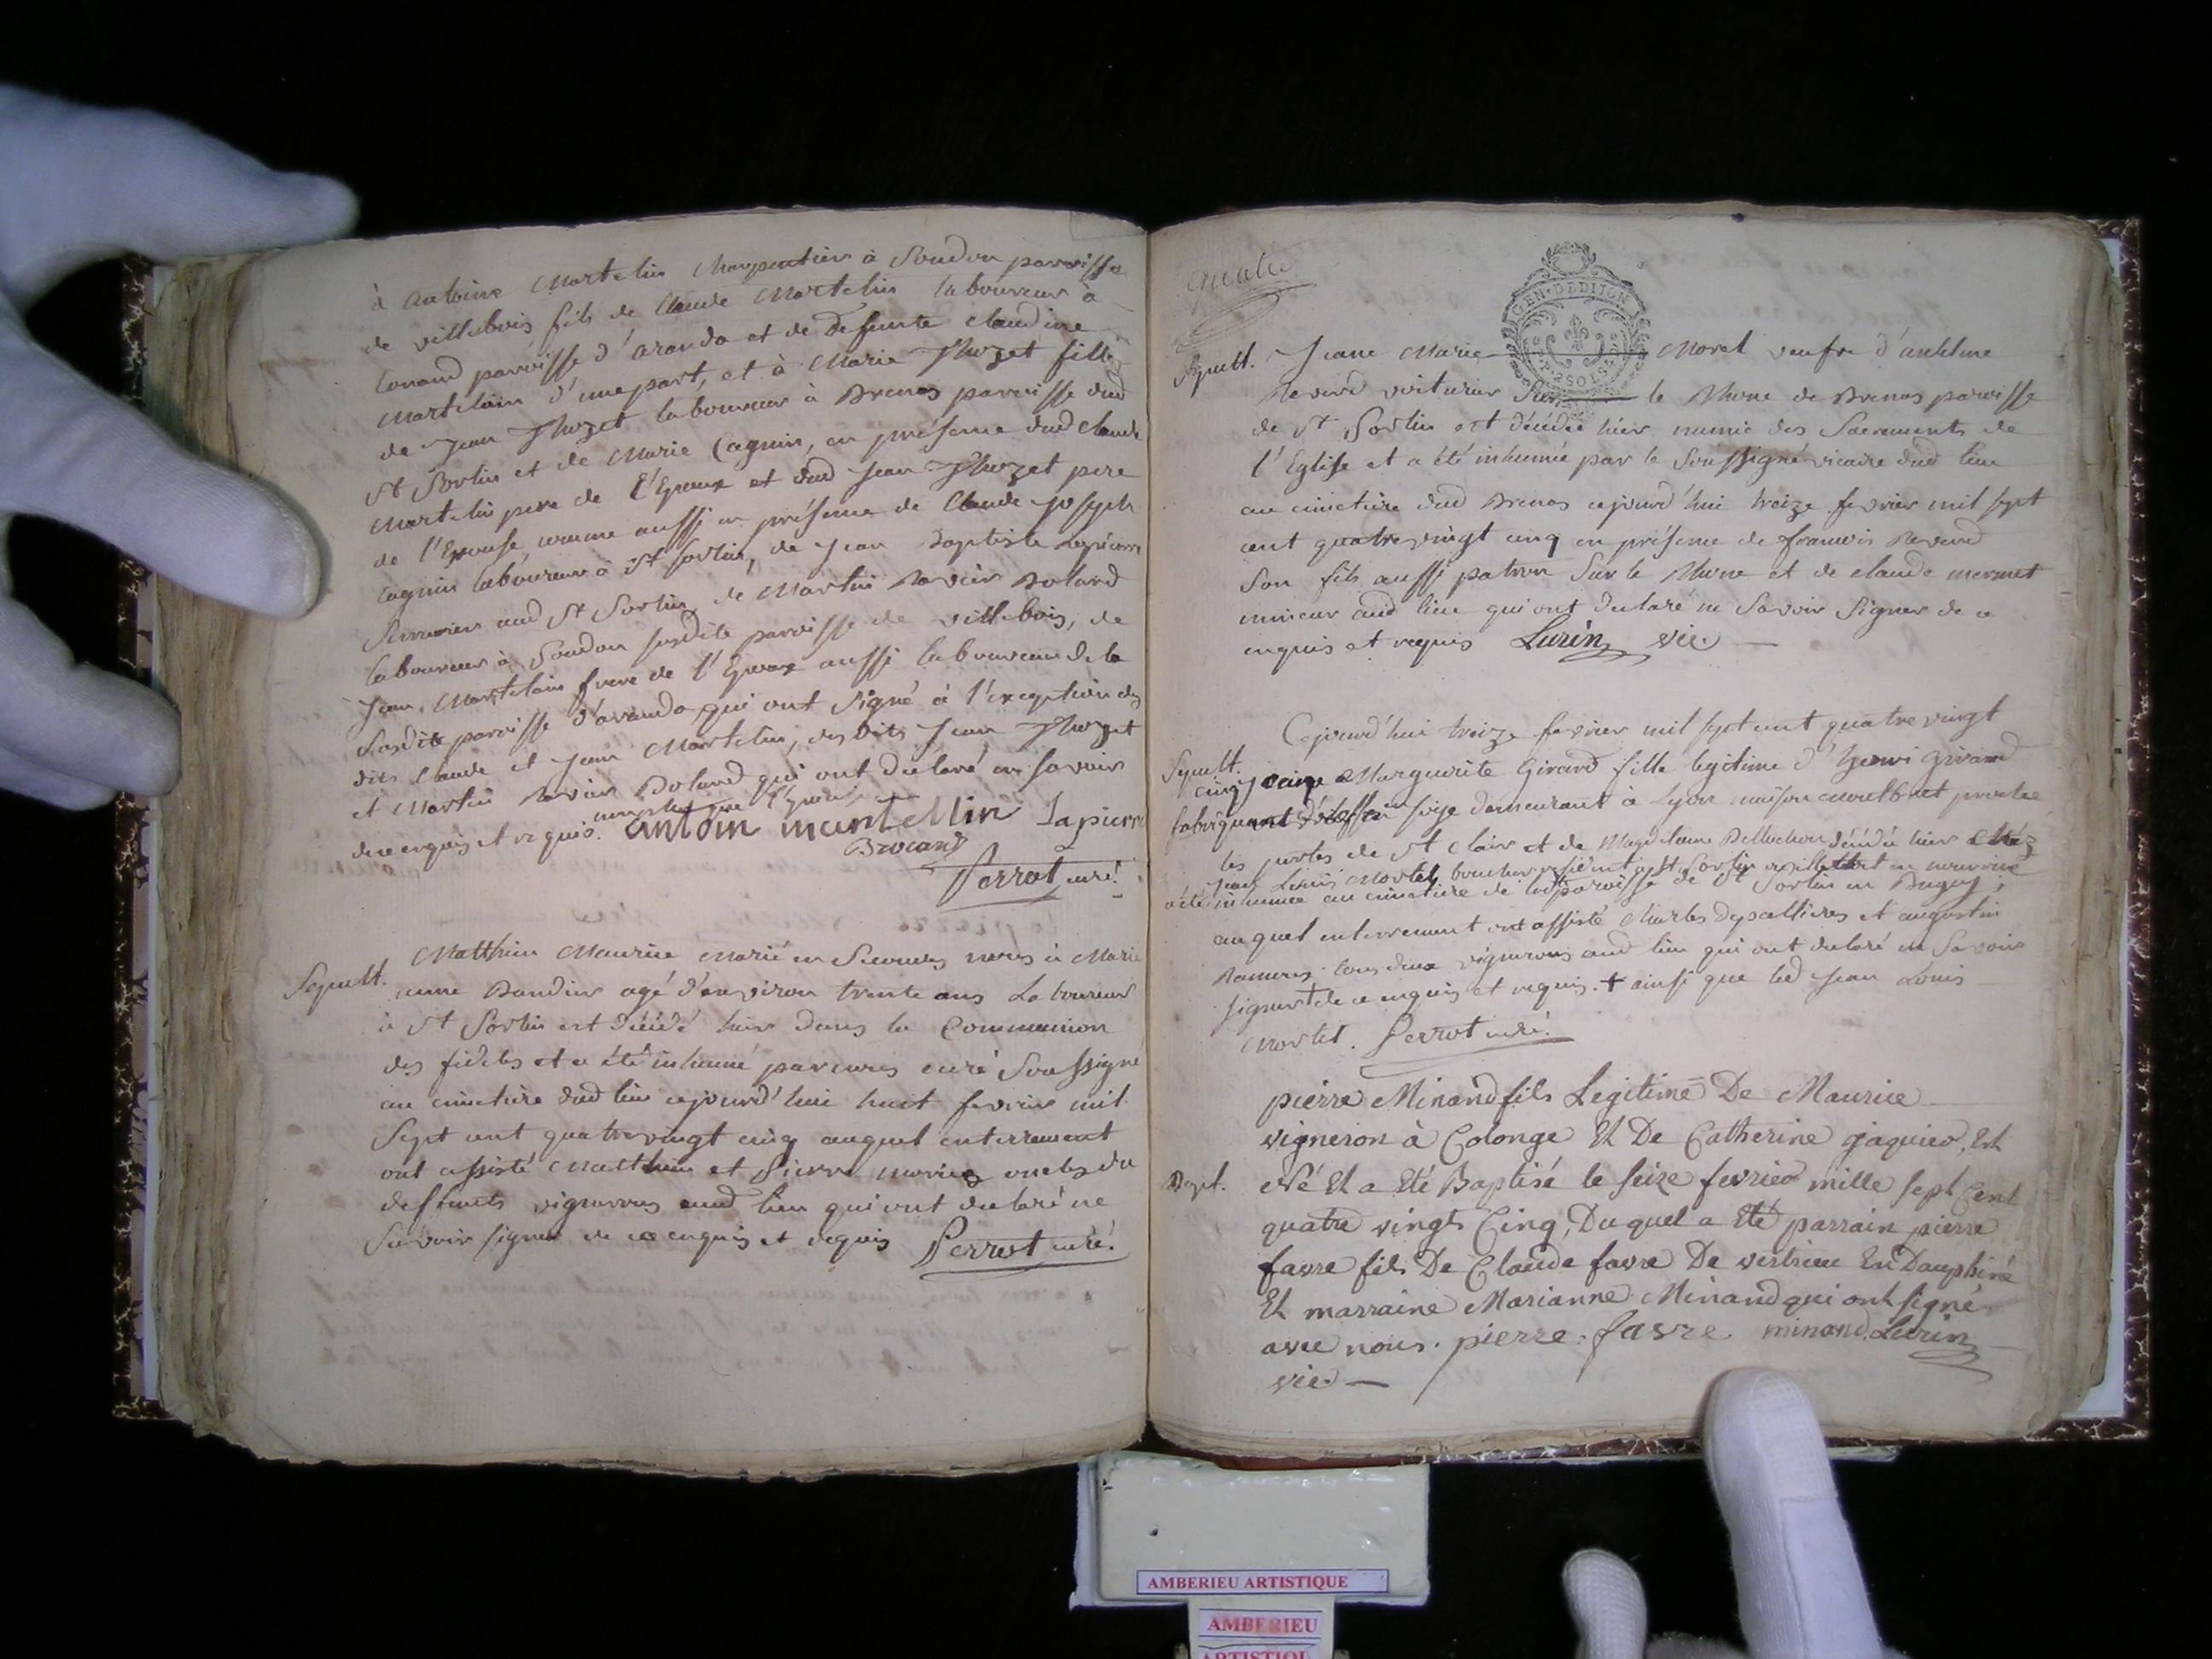 à Antoine Martelin Charpentier à Soudon paroisse
de villebois fils de Claude Martelin laboureur à
Conand paroisse d'aranda et de defunte Claudine
Martelain d'une part, et à Marie Thozet fille
de Jean Thozet laboureur à Brenas paroisse dud
St Sorlin et de Marie Cagnin, en présence dud Claude
Martelin pere de l'Epoux et dud Jean Thozet pere
de l'Epouse, comme aussi en présence de Claude Joseph
Cagnin laboureur à St Sorlin, de Jean Baptiste Lapierre
Serrurier aud St Sorlin, de Martin Bolard
laboureur à Soudon susdite paroisse de villebois, de
Jean Martelain frere de l'Epoux aussi laboureur de la
Susdite paroisse d'aranda, qui ont Signé à l'exception des
dits Claude et Jean Martelin, des dits Jean Thozet
et Martin Bolard qui ont declaré ne savoir
de ce enquis et requis. antoin martellin Lapierre
Brocard
Perrot curé.
Sepult. Matthieu Maurice marié en Secondes noces à Marie
anne Baudin agé d'environ trente ans Laboureur
à St Sorlin est décédé hier dans la Communion
des fideles et a été inhumé par moi curé Soussigné
au cimetière dud lieu cejourd'hui huit fevrier mil
Sept cent quatrevingt cinq auquel enterrement
ont assisté Matthieu et Pierre oncles du
deffunts vignerons aud lieu qui ont declaré ne
Savoir signer de ce enquis et requis Perrot curé.
quatre
GEN·DE DIJON
P·2 SOLS
Sepult. Jeane Marie Morel veufve d'antelme
Reverd voiturier Sur le Rhone de Brenas paroisse
de St Sorlin est décédée hier munie des Sacrements de
l'Eglise et a été inhumée par le Soussigné vicaire dud lieu
au cimetière dud Brenas cejourd'hui treize fevrier mil sept
cent quatrevingt cinq en présence de francois Reverd
Son fils aussi patron Sur le Rhone et de claude mermet
mineur aud lieu qui ont declaré ne Savoir Signer de ce
enquis et requis Lurin vic
Cejourd'hui treize fevrier mil sept cent quatre vingt
Sepult. cinq Marguerite Girard fille legitime d'henri Girard
fabriquant d'étoffe en soye demeurant à Lyon maison proche
les portes de St Clair et de Magdelaine décédée hier chez
Jean Louis Mortel boucher St Sorlin en nourrice
a été inhumée au cimetiere de lad paroisse de St Sorlin en Bugey,
auquel enterrement ont assisté Charles et augustin
tous deux vignerons aud lieu qui ont declaré ne Savoir
signer de ce enquis et requis. + ainsi que led Jean Louis
Mortel. Perrot curé.
pierre Minand fils Legitime De Maurice
vigneron à Colonge Et De Catherine jaquier, Est
Bapt. Né Et a Eté Baptisé le seize fevrier mille sept Cent
quatre vingts Cinq, Duquel a Eté parrain pierre
favre fils De Claude favre De vertrieu En Dauphiné
Et marraine Marianne Minand qui ont signé
avec nous. pierre favre minand. Lurin
vic
AMBERIEU ARTISTIQUE
AMBERIEU
ARTISTIQUE